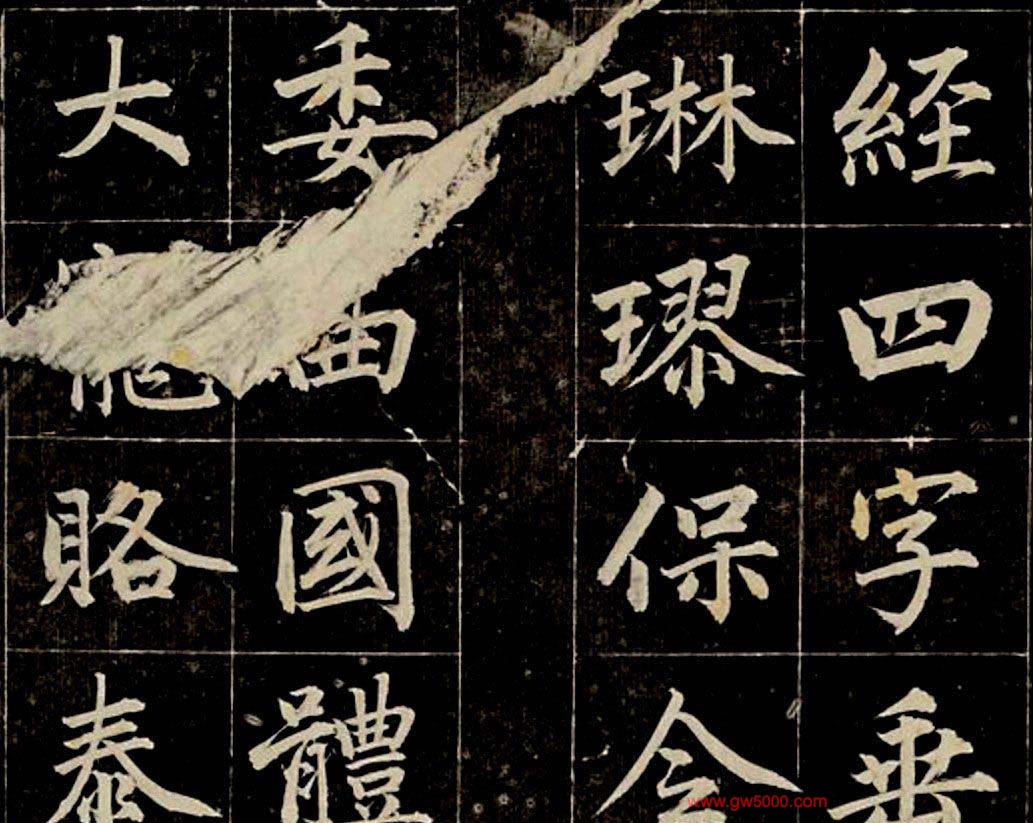 経四字垂
琳璆保
委曲國體
大賂泰
www.gw5000.com